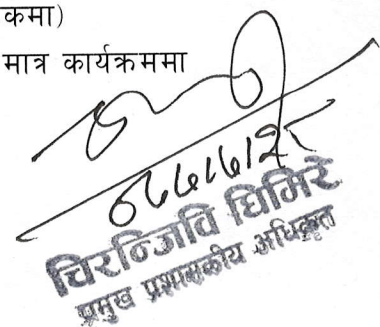 कमा)
मात्र कार्यक्रममा
चिरन्जिवि घिमिरे
प्रमुख प्रशासकीय अधिकृत